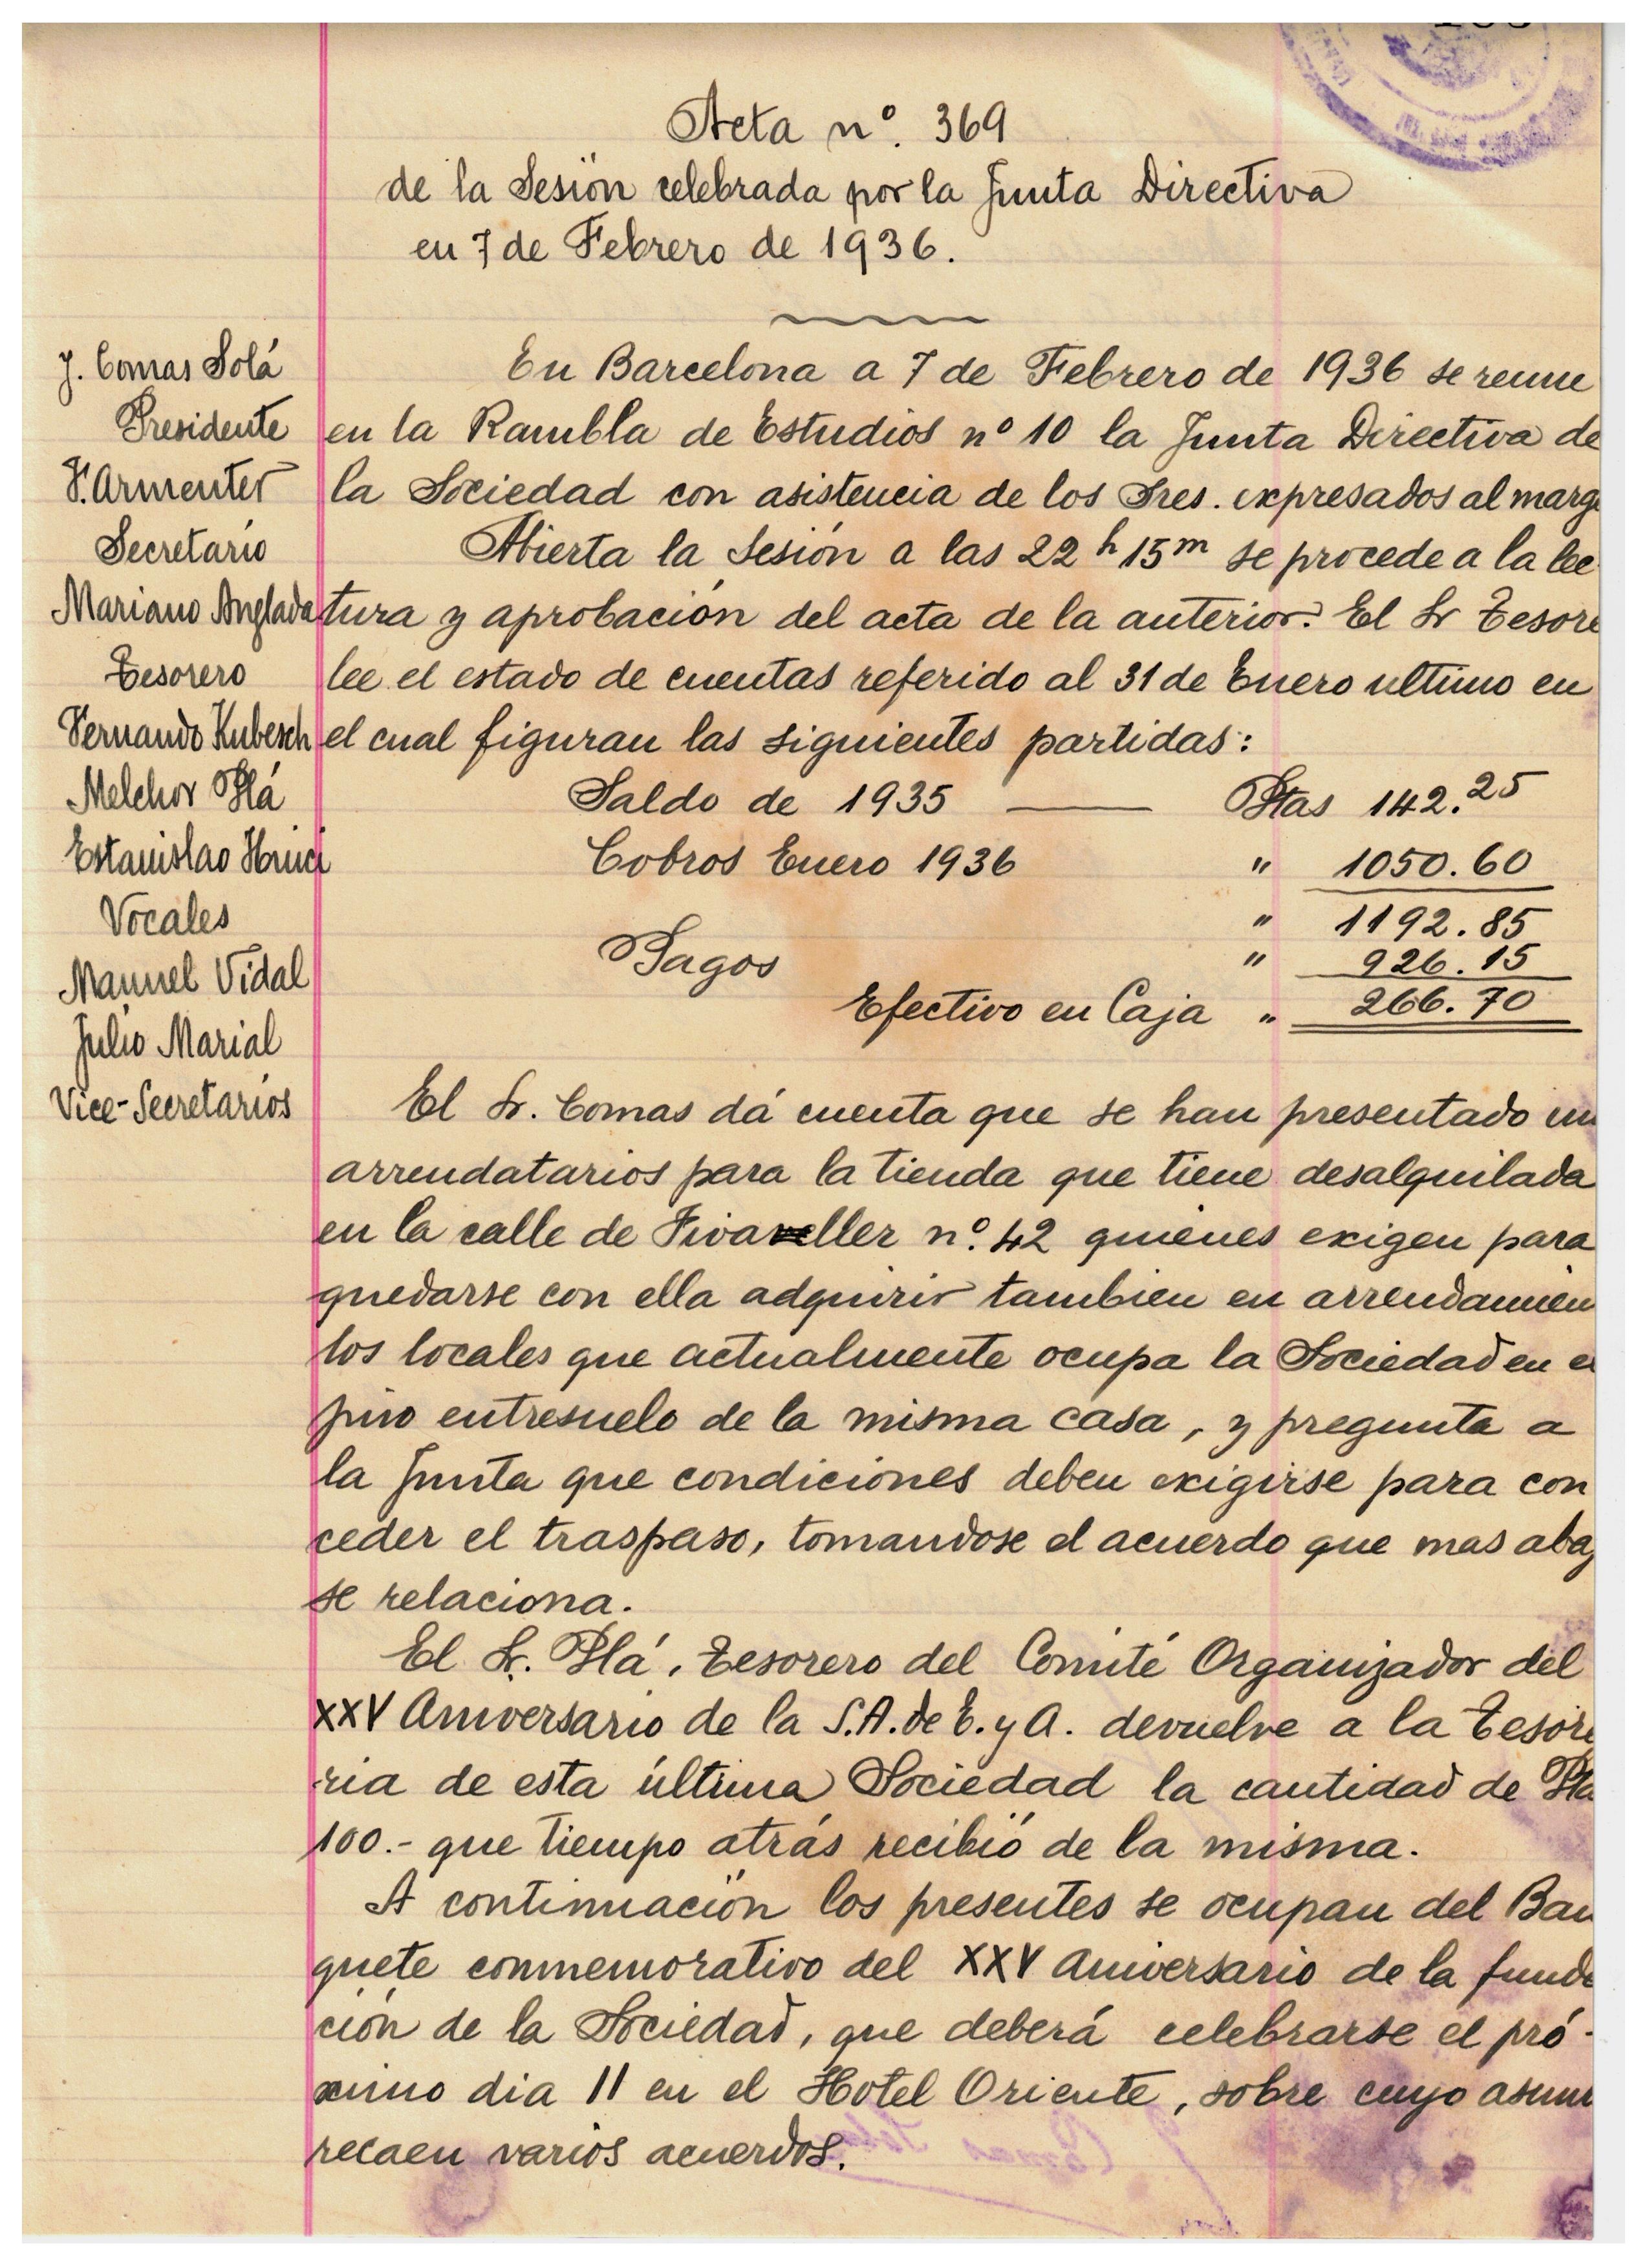 Acta nº. 369
de la Sesión celebrada por la Junta Directiva
en 7 de Febrero de 1936.
J. Comas Solá
Presidente
F. Armenter
Secretario
Mariano Anglada
Tesorero
Fernando Kubesch
Melchor Plá
Estanislao
Vocales
Manuel Vidal
Julio Marial
Vice-Secretarios
En Barcelona a 7 de Febrero de 1936 se reune
en la Rambla de Estudios nº 10 la Junta Directiva de
la Sociedad con asistencia de los Sres. expresados al marg
Abierta la Sesión a las 22 h 15 m se procede a la lec
tura y aprobación del acta de la anterior. El Sr Tesore
lee el estado de cuentas referido al 31 de Enero ultimo en
el cual figuran las siguientes partidas:
Saldo de 1935 —— Ptas 142.25
Cobros Enero 1936 " 1050.60
" 1192.85
Pagos " 926.15
Efectivo en Caja " 266.70
El Sr. Comas dá cuenta que se han presentado un
arrendatarios para la tienda que tiene desalquilada
en la calle de Fivaller nº. 42 quienes exigen para
quedarse con ella adquirir tambien en arrendamien
los locales que actualmente ocupa la Sociedad en e
piso entresuelo de la misma casa, y pregunta a
la Junta que condiciones deben exigirse para con
ceder el traspaso, tomandose el acuerdo que mas abaj
se relaciona.
El Sr. Plá, Tesorero del Comité Organizador del
XXV Aniversario de la S.A. de E. y A. devuelve a la Tesore
ria de esta última Sociedad la cantidad de Pta
100.- que tiempo atrás recibió de la misma.
A continuación los presentes se ocupan del Ban
quete conmemorativo del XXV Aniversario de la funda
ción de la Sociedad, que deberá celebrarse el pró-
ximo dia 11 en el Hotel Oriente, sobre cuyo asun
recaen varios acuerdos.